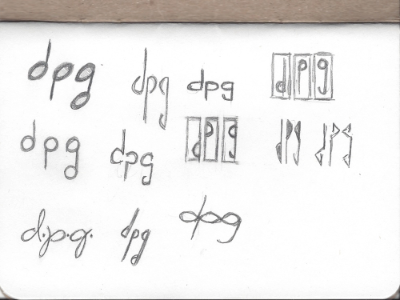 dpg dpg dpg dpg
dpg dpg dpg dpg dpg
d.p.g. dpg dpg